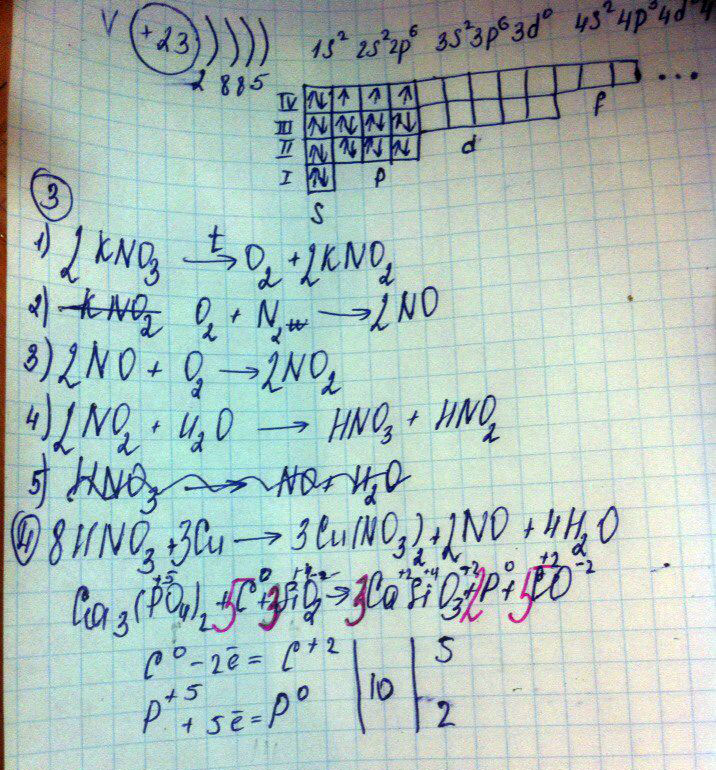 V +23 1s² 2s²2p⁶ 3s²3p⁶3d⁰ 4s²4p³4d⁰4
2 8 8 5
IV ↑↓ ↑ ↑ ↑ ...
III ↑↓ ↑↓ ↑↓ ↑↓ f
II ↑↓ ↑↓ ↑↓ ↑↓ d
I ↑↓ p
s
3
1) 2KNO₃ t→ O₂ + 2KNO₂
2) KNO₂ O₂ + N₂ → 2NO
3) 2NO + O₂ → 2NO₂
4) 2NO₂ + H₂O → HNO₃ + HNO₂
5) HNO₃ → NO + H₂O
4 8HNO₃ + 3Cu → 3Cu(NO₃)₂ + 2NO + 4H₂O
+5 0 +4 -2 +2 +4 -2 0 +2 -2
Ca₃(PO₄)₂ + 5C + 3SiO₂ → 3CaSiO₃ + 2P + 5CO
C⁰ - 2ē = C⁺² | 10 | 5
P⁺⁵ + 5ē = P⁰ | | 2